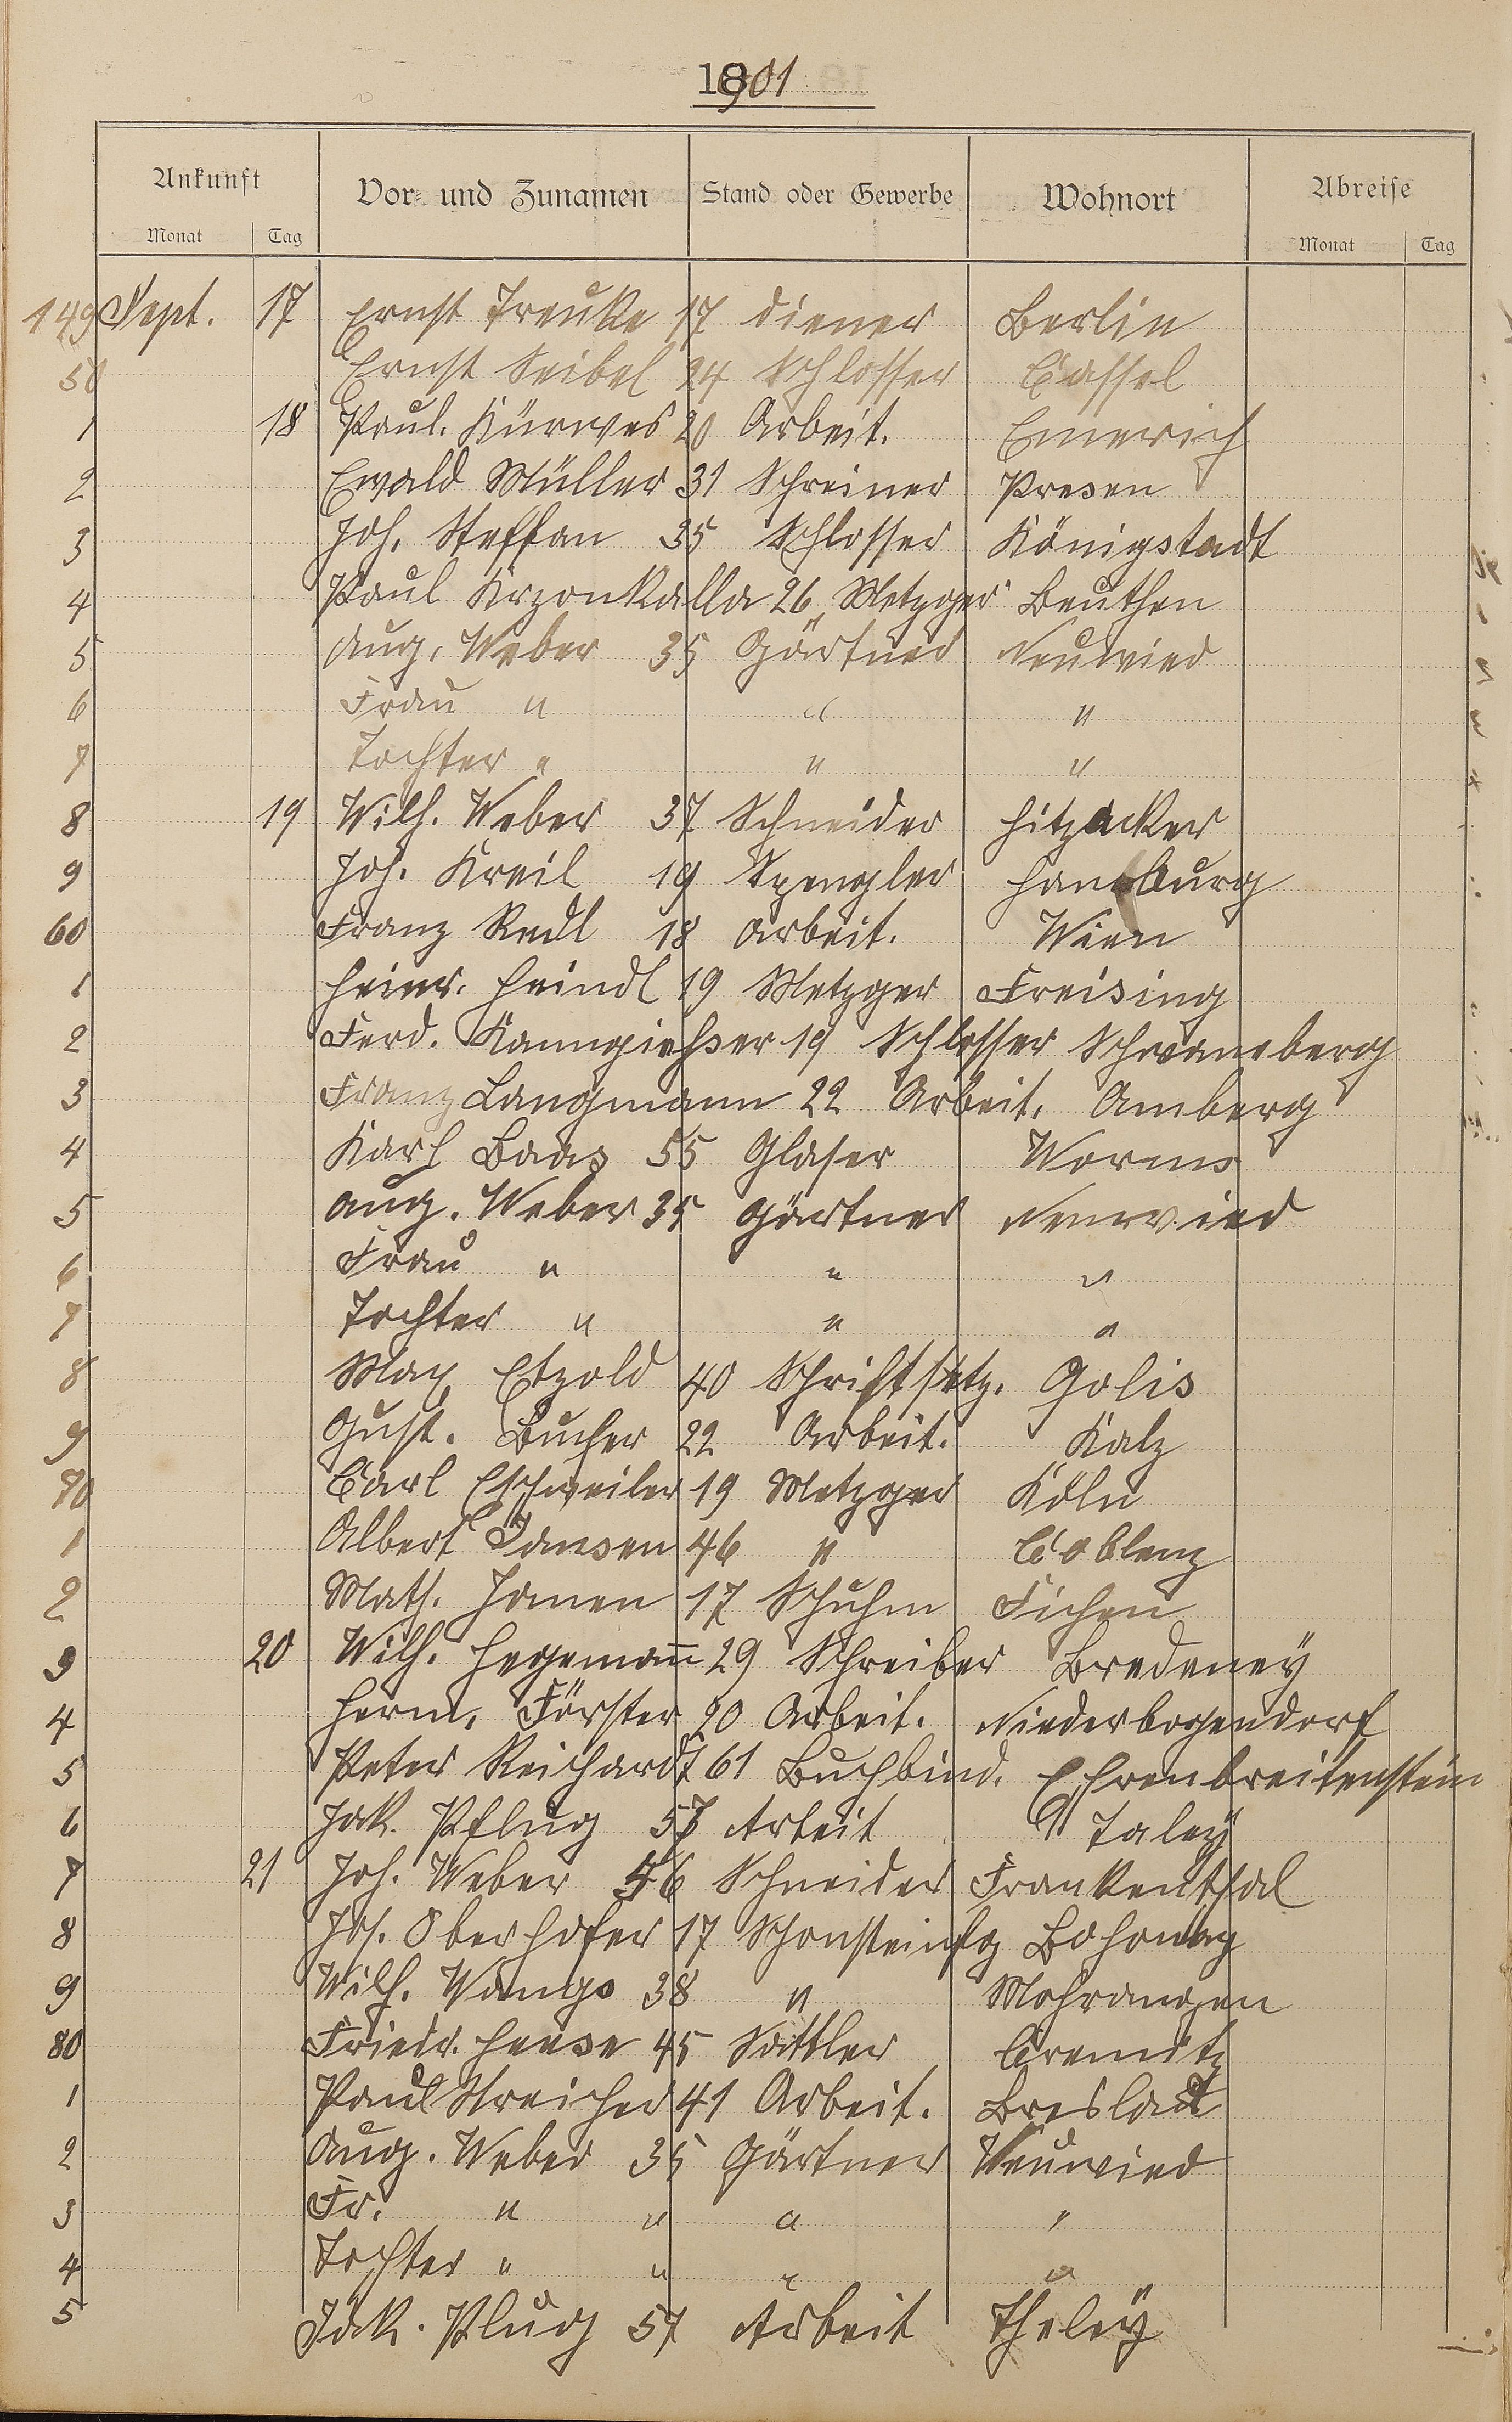 1901
Ankunft Vor- und Zunamen Stand oder Gewerbe Wohnort Abreise
Monat Tag Monat Tag
149 Sept. 17 Ernst Treuke 17 Diener Berlin
50 Ernst Seibel 24 Schlosser Cassel
1 18 Paul Kürwes 20 Arbeit. Emerich
2 Ewald Müller 31 Schreiner Presen
3 Joh. Steffan 35 Schlosser Königstadt
4 Paul Krzonkalla 26 Metzger Beuthen
5 Aug. Weber 35 Gärtner Neuwied
6 Frau " " "
7 Tochter " " "
8 19 Wilh. Weber 37 Schneider Hitzacker
9 Joh. Kreil 19 Spengler Hamburg
60 Franz Redl 18 Arbeit. Wien
1 Heinr. Heindl 19 Metzger Freising
2 Ferd. Kanngießser 19 Schlosser Schwaneberg
3 Franz Langmann 22 Arbeit. Amberg
4 Karl Baas 55 Glaser Worms
5 Aug. Weber 35 Gärtner Neuwied
6 Frau " " "
7 Tochter " " "
8 Max Etzold 40 Schriftsetz. Golis
9 Gust. Bucher 22 Arbeit. Kalz
70 Carl Eschweiler 19 Metzger Köln
1 Albert Jansen 46 " Coblenz
2 Math. Jomen 17 Schuhm Eichen
3 20 Wilh. Hegemann 29 Schreiber Bredeney
4 Herm. Förster 20 Arbeit. Niederbogendorf
5 Peter Reichardt 61 Buchbind. Ehrenbreitenstein
6 Jak. Pflug 57 Arbeit Taley
7 21 Joh. Weber 46 Schneider Frankenthal
8 Jos. Oberhofer 17 Schonsteinfg
9 Wilh. 38 " Mohrangen
80 Friedr. Heese 45 Sattler
1 Paul Streicher 41 Arbeit. Breslau
2 Aug. Weber 35 Gärtner Neuwied
3 Fr. " " " "
4 Tochter " " " "
5 Jak. Plug 57 Arbeit Theley